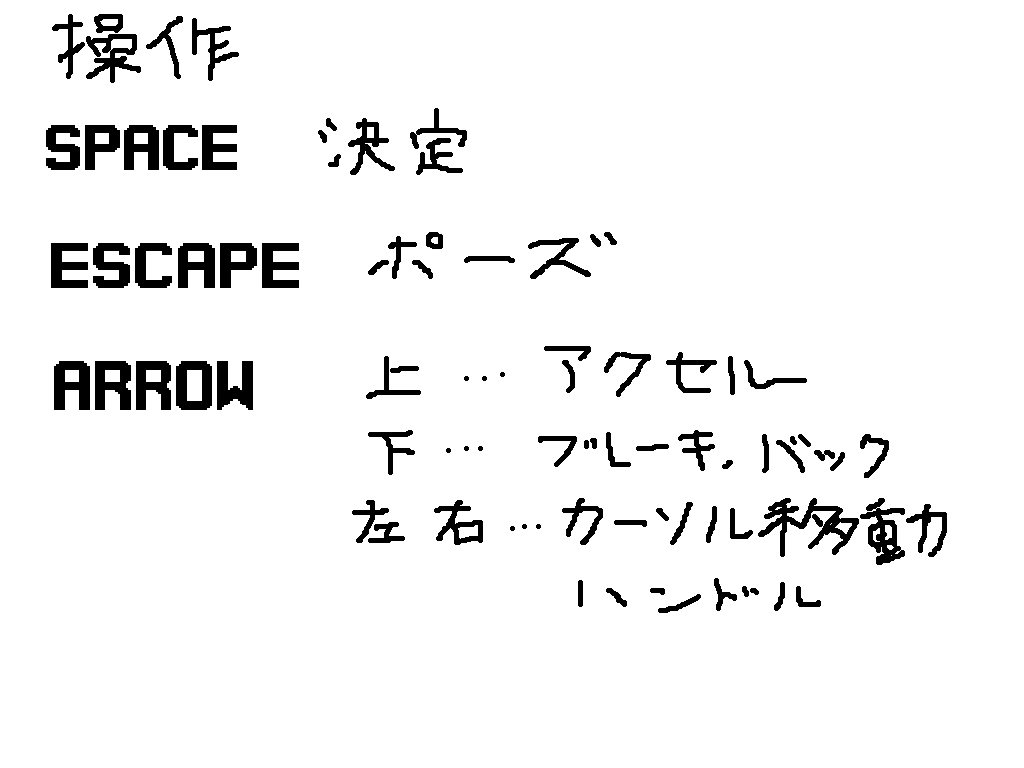 操作
SPACE 決定
ESCAPE ポーズ
ARROW 上 … アクセル
下 … ブレーキ、バック
左右…カーソル移動
ハンドル